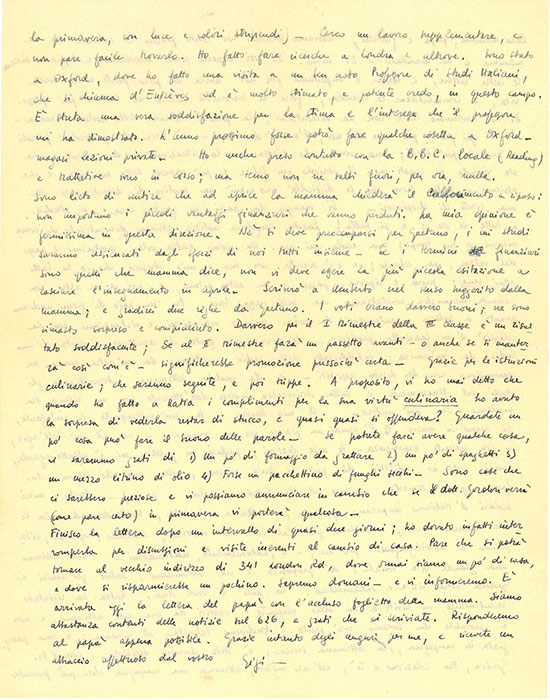 la primavera, con luce e colori stupendi) – Cerco un lavoro supplementare, e
non pare facile trovarlo. Ho fatto fare ricerche a Londra e altrove. Sono stato
a Oxford, dove ho fatto una visita a un ben noto Professore di Studi Italiani,
che si chiama d'Entrèves ed è molto stimato, e potente credo, in questo campo.
È stata una vera soddisfazione per la stima e l'interesse che il professore
mi ha dimostrato. L'anno prossimo forse potrà fare qualche cosetta a Oxford –
magari lezioni private – Ho anche preso contatto con la B.B.C. locale (Reading)
e trattative sono in corso; ma temo non ne salti fuori, per ora, nulla.
Sono lieto di sentire che ad aprile la mamma chiederà il collocamento a riposo:
non importano i piccoli vantaggi finanziari che vanno perduti. La mia opinione è
fermissima in questa direzione. Nè si deve preoccuparsi per Gaetano, i cui studi
saranno assicurati dagli sforzi di noi tutti insieme – Se i termini finanziari
sono quelli che mamma dice, non vi deve essere la più piccola esitazione a
lasciare l'insegnamento in aprile – Scriverò a Umberto nel senso suggerito dalla
mamma; e gradirei due righe da Gaetano. I voti erano davvero buoni; ne sono
rimasto sorpreso e compiaciuto. Davvero per il I trimestre della III classe è un risul
tato soddisfacente; Se al II trimestre farà un passetto avanti – o anche se si manter
rà così com'è – significherebbe promozione pressochè certa – Grazie per le istruzioni
culinarie; che saranno seguite, e poi trippe. A proposito, vi ho mai detto che
quando ho fatto a Katia i complimenti per la sua virtù culinaria ho avuto
la sorpresa di vederla restar di stucco, e quasi quasi si offendeva? Guardate un
po' cosa può fare il suono delle parole – Se potete farci avere qualche cosa,
vi saremmo grati di 1) Un po' di formaggio da grattare 2) un po' di spaghetti 3)
un mezzo litrino di olio 4) Forse un pacchettino di funghi secchi – Sono cose che
ci sarebbero preziose e vi possiamo annunciare in cambio che se il dott. Gordon verrà
(come pare certo) in primavera vi porterà qualcosa –
Finisco la lettera dopo un intervallo di quasi due giorni; ho dovuto infatti inter
romperla per discussioni e visite inerenti al cambio di casa. Pare che si potrà
tornare al vecchio indirizzo di 341 London Rd, dove ormai siamo un po' di casa,
e dove si risparmierebbe un pochino. Sapremo domani – e vi informeremo. È
arrivata oggi la lettera del papà con l'accluso foglietto della mamma. Siamo
abbastanza contenti delle notizie sul 626, e grati che ci scriviate. Risponderemo
al papà appena possibile. Grazie intanto degli auguri per me, e ricevete un
abbraccio affettuoso dal vostro Gigi –